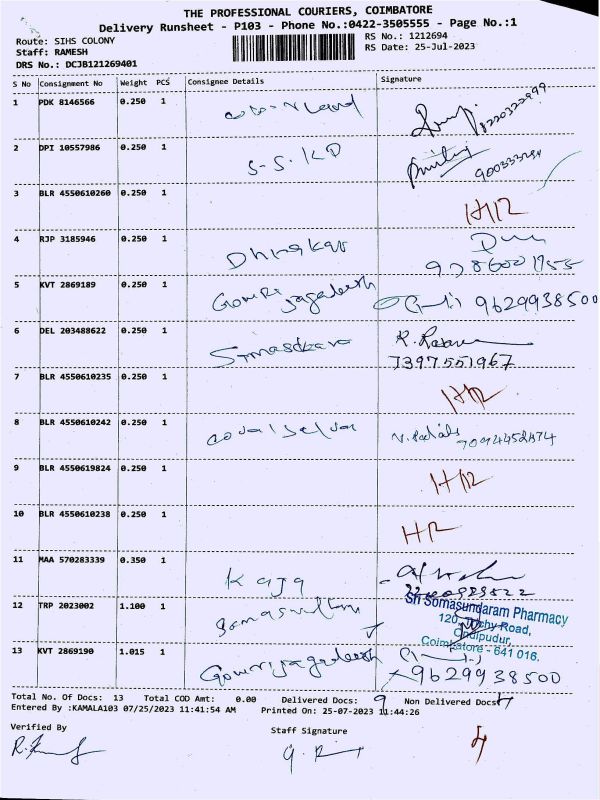 THE PROFESSIONAL COURIERS, COIMBATORE
Delivery Runsheet - P103 - Phone No.:0422-3505555 - Page No.:1
Route: SIHS COLONY
Staff: RAMESH
DRS No.: DCJB121269401
RS No.: 1212694
RS Date: 25-Jul-2023
S No Consignment No Weight PCS Consignee Details Signature
1 PDK 8146566 0.250 1
8220322999
2 DPI 10557986 0.250 1 S-S. KD
3 BLR 4550610260 0.250 1 H/R
4 RJP 3185946 0.250 1 Dhinakar
5 KVT 2869189 0.250 1 Gowri jagadeesh 9629938500
6 DEL 203488622 0.250 1 R.
7397551967
7 BLR 4550610235 0.250 1 H/R
8 BLR 4550610242 0.250 1
9 BLR 4550619824 0.250 1 H/R
10 BLR 4550610238 0.250 1 HR
11 MAA 570283339 0.350 1 Kaja
12 TRP 2023002 1.100 1
Sri Somasundaram Pharmacy
120, Trichy Road,
Coimbatore - 641 016.
13 KVT 2869190 1.015 1 Gowri jagadeesh 9629938500
Total No. Of Docs: 13 Total COD Amt: 0.00 Delivered Docs: 9 Non Delivered Docs: 4
Entered By :KAMALA103 07/25/2023 11:41:54 AM Printed On: 25-07-2023 11:44:26
Verified By Staff Signature
4